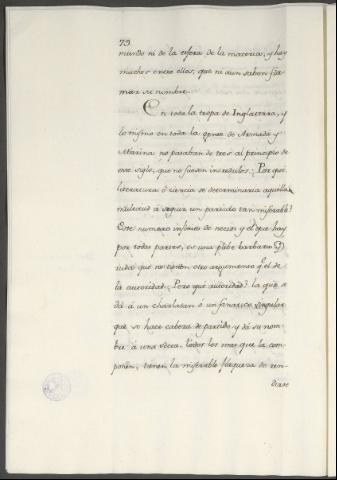 79
mundo ni de la esfera de la materia; y hay
muchos entre ellos, que ni aun saben fir-
mar su nombre.
En toda la tropa de Inglaterra, y
lo mismo en toda la gente de Armada y
Marina no pasaban de tres al principio de
este siglo, que no fuesen incredulos. Por que
literatura ó ciencia se determinaria aquella
multitud á seguir un partido tan miserable?
Este numero infinito de necios y el que hay
por todas partes, es una plebe barbara y
ruda que no tienen otro argumento q.e el de
la autoridad. Pero qué autoridad? la que se
dá á un charlatan ó un fanatico singular
que se hace cabeza de partido y dá su nom-
bre á una secta. Todos los mas que la com-
ponen, tienen la miserable flaqueza de ren-
dirse